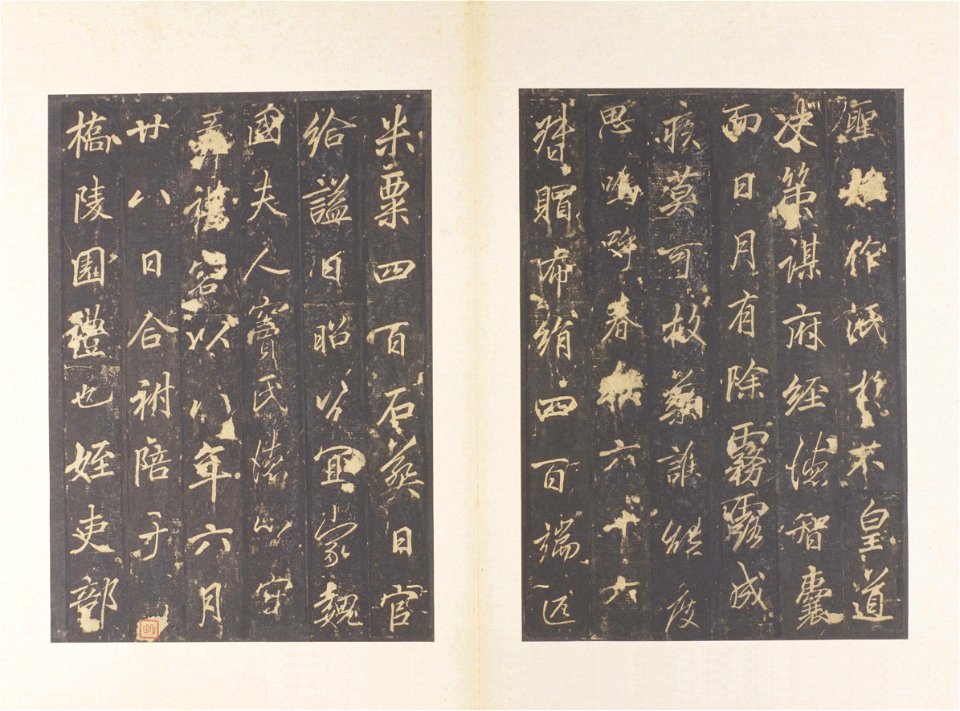 聖丕皇道
决策謀府經德智囊
而日月有除霧露成
疾莫可救藥誰繇度
思嗚呼春秋六十六
賵布絹四百端匹
米粟四百石葬日官
給謚曰昭公宜家魏
國夫人竇氏懷山守
禮容以八年六月
廿八日合祔陪于
橋陵園禮也姪吏部